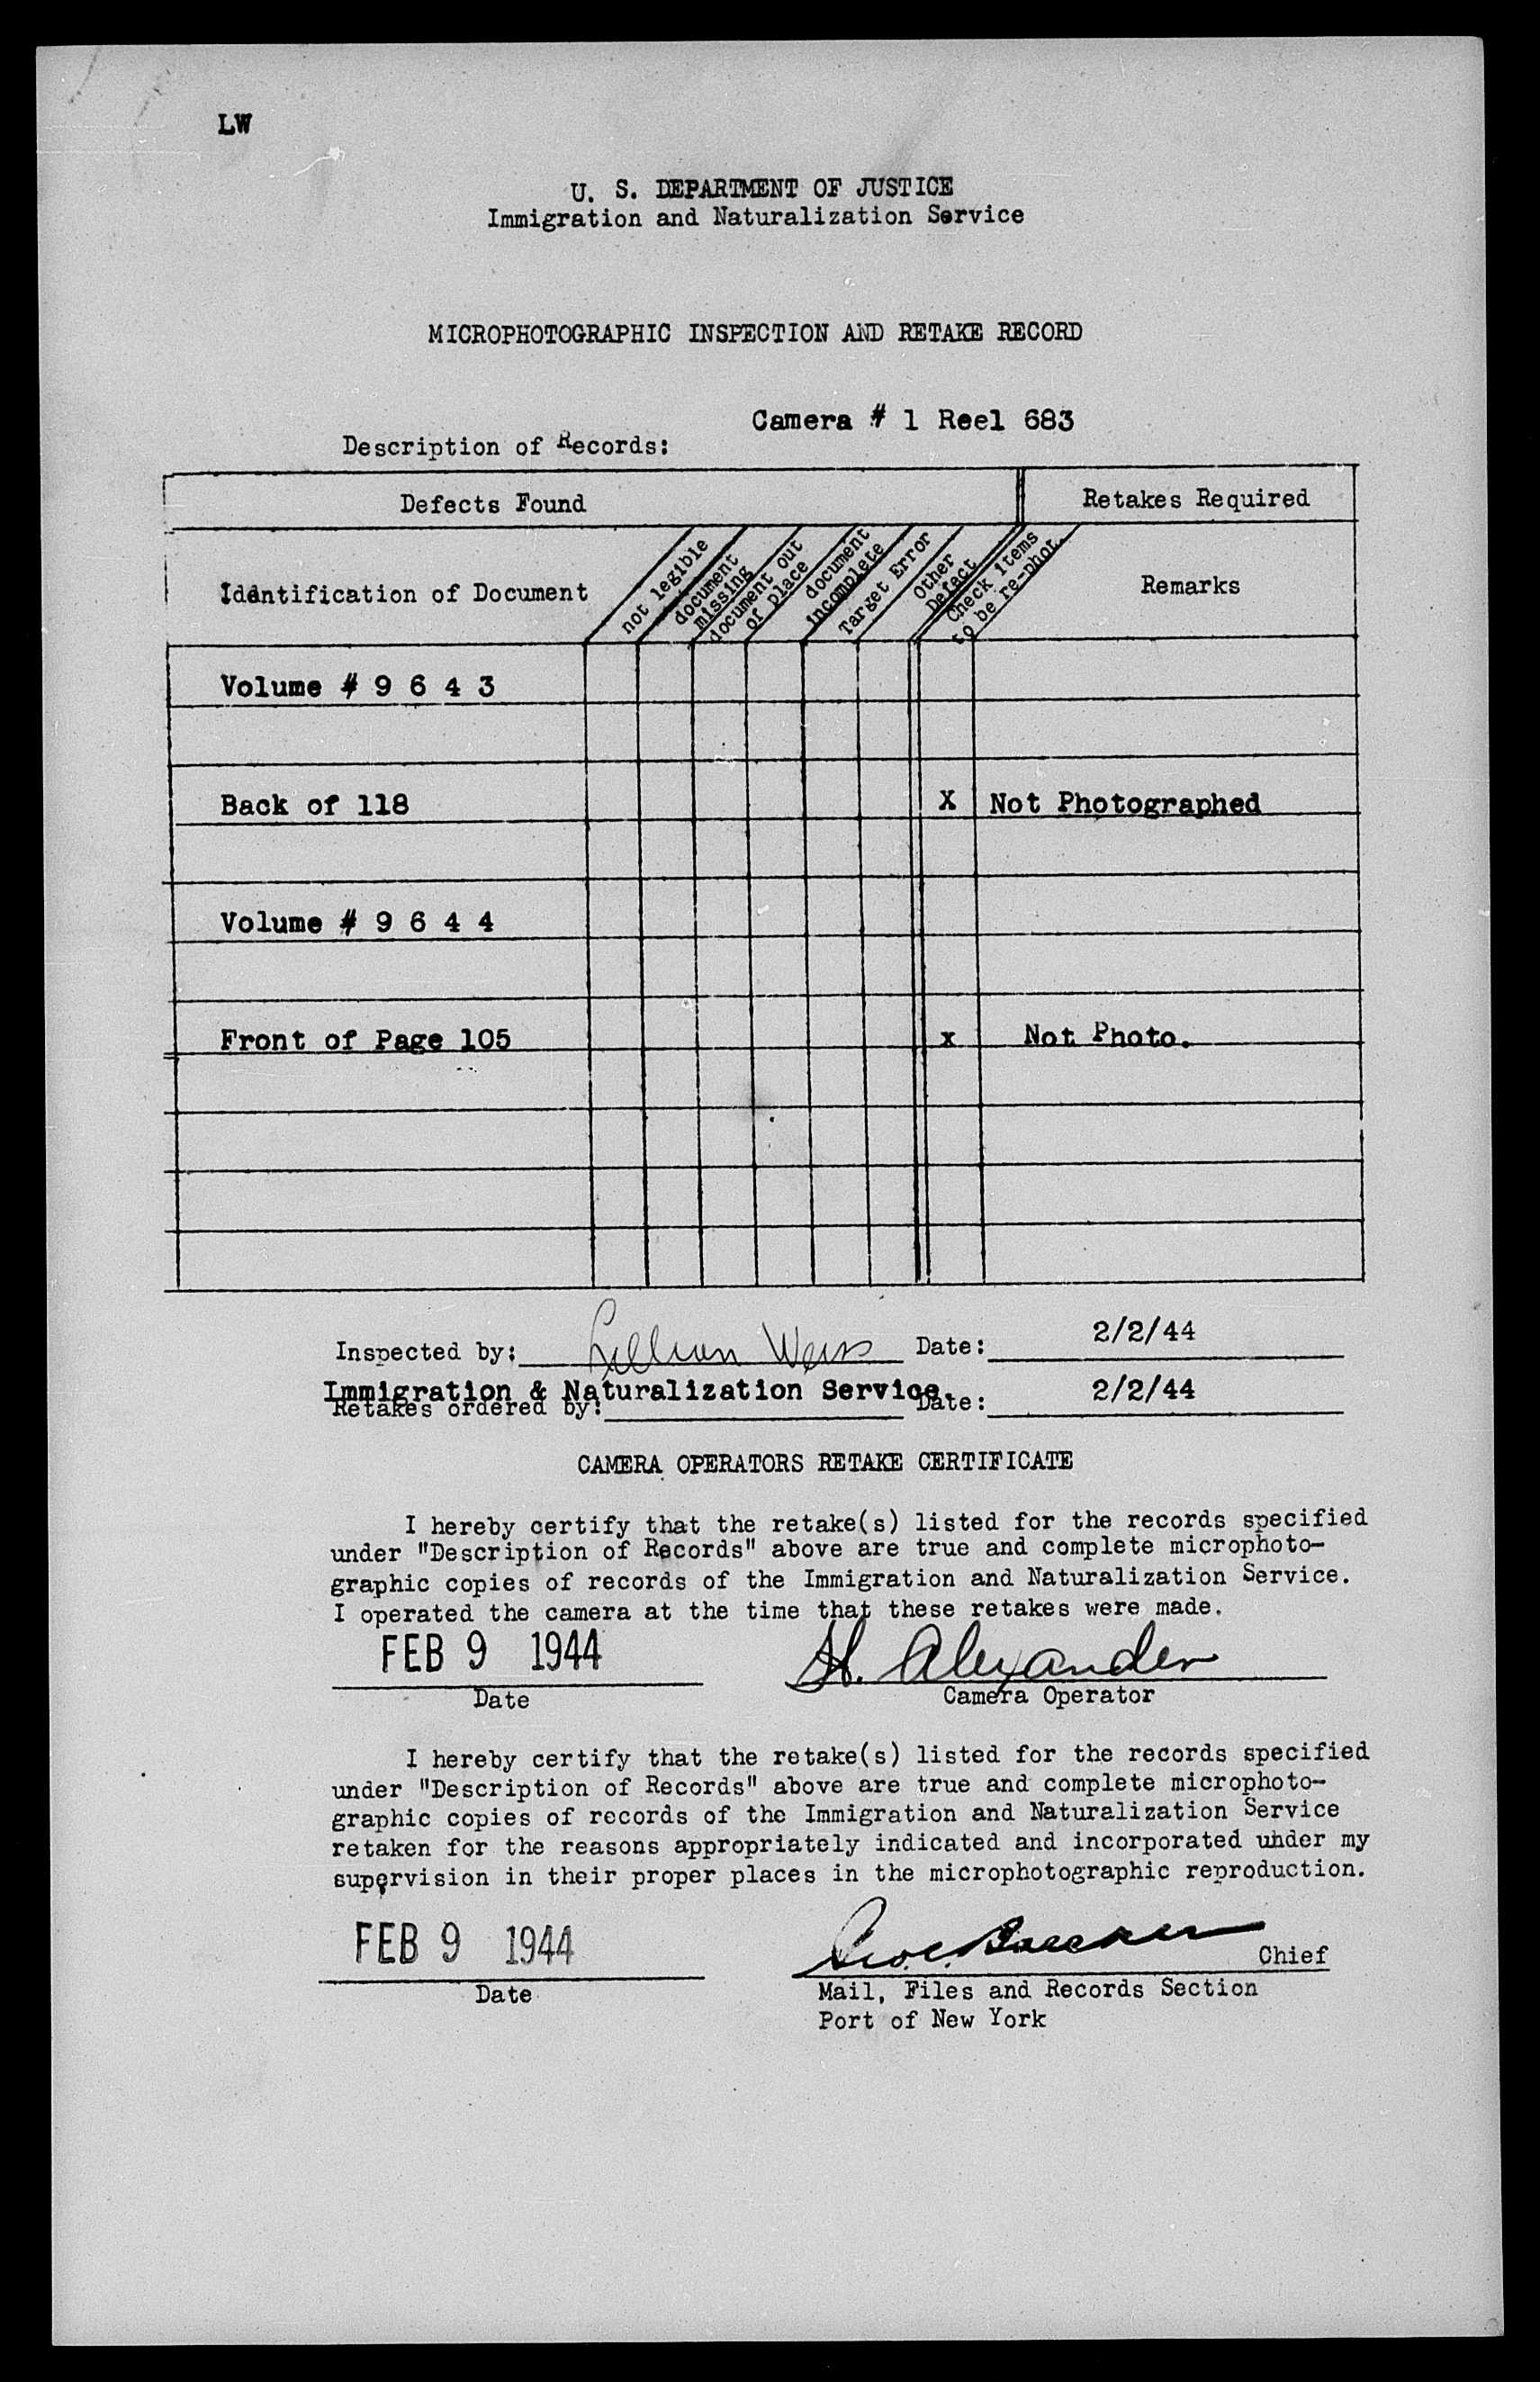 LW
U. S. DEPARTMENT OF JUSTICE
Immigration and Naturalization Service
MICROPHOTOGRAPHIC INSPECTION AND RETAKE RECORD
Camera # 1 Reel 683
Description of Records:
Defects Found
Retakes Required
Identification of Document
not legible
document missing
document out of place
document incomplete
Target Error
Other Defect
Check items to be re-phot.
Remarks
Volume # 9 6 4 3
Back of 118 X Not Photographed
Volume # 9 6 4 4
Front of Page 105 x Not Photo.
Inspected by: Lillian Weiss Date: 2/2/44
Immigration & Naturalization Service.
Retakes ordered by: Date: 2/2/44
CAMERA OPERATORS RETAKE CERTIFICATE
I hereby certify that the retake(s) listed for the records specified
under "Description of Records" above are true and complete microphoto-
graphic copies of records of the Immigration and Naturalization Service.
I operated the camera at the time that these retakes were made.
FEB 9 1944 H. Alexander
Date Camera Operator
I hereby certify that the retake(s) listed for the records specified
under "Description of Records" above are true and complete microphoto-
graphic copies of records of the Immigration and Naturalization Service
retaken for the reasons appropriately indicated and incorporated under my
supervision in their proper places in the microphotographic reproduction.
FEB 9 1944 Chief
Date Mail, Files and Records Section
Port of New York